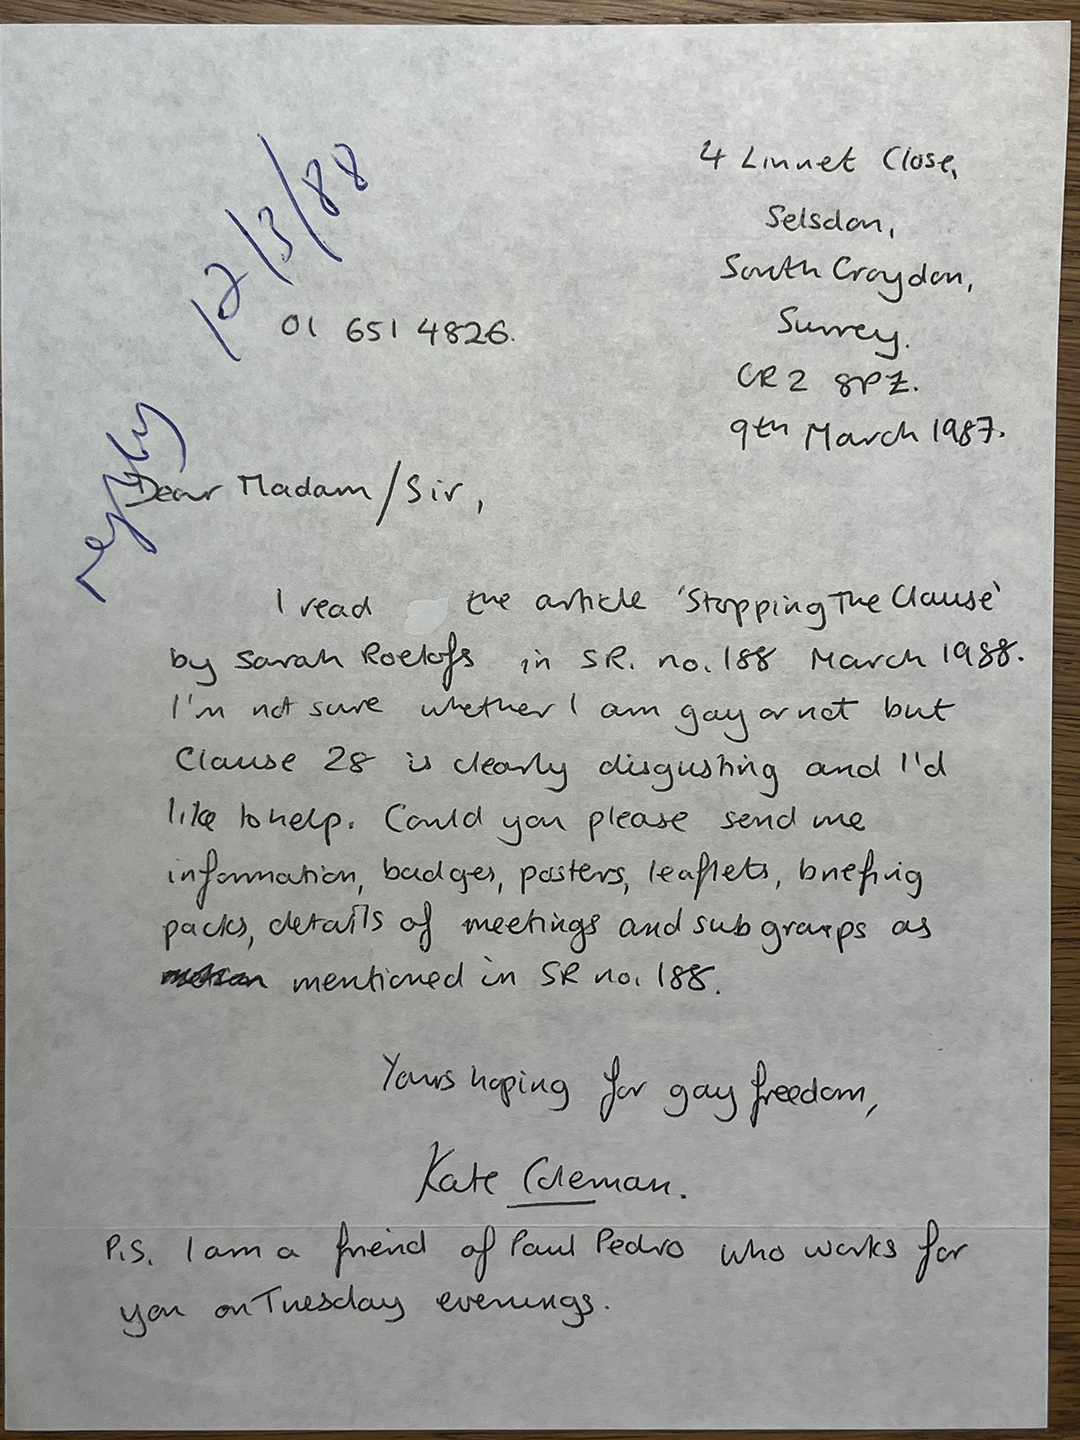 4 Linnet Close,
Selsdon,
South Croydon,
Surrey.
CR2 8PZ.
9th March 1987.
12/3/88
01 651 4826.
Dear Madam/Sir,
I read the article 'Stopping The Clause'
by Sarah Roelofs in SR. no. 188 March 1988.
I'm not sure whether I am gay or not but
Clause 28 is clearly disgusting and I'd
like to help. Could you please send me
information, badges, posters, leaflets, briefing
packs, details of meetings and sub groups as
mentioned in SR no. 188.
Yours hoping for gay freedom,
Kate Coleman.
P.S. I am a friend of Paul Pedro who works for
you on Tuesday evenings.